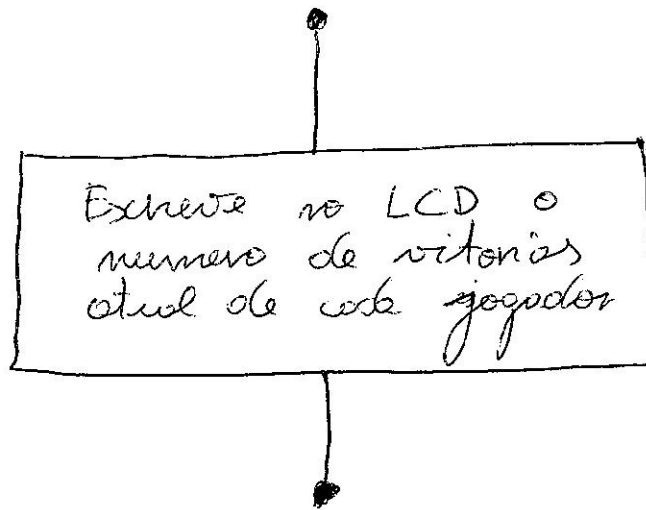 Escreve no LCD o
numero de vitorias
atual de cada jogador